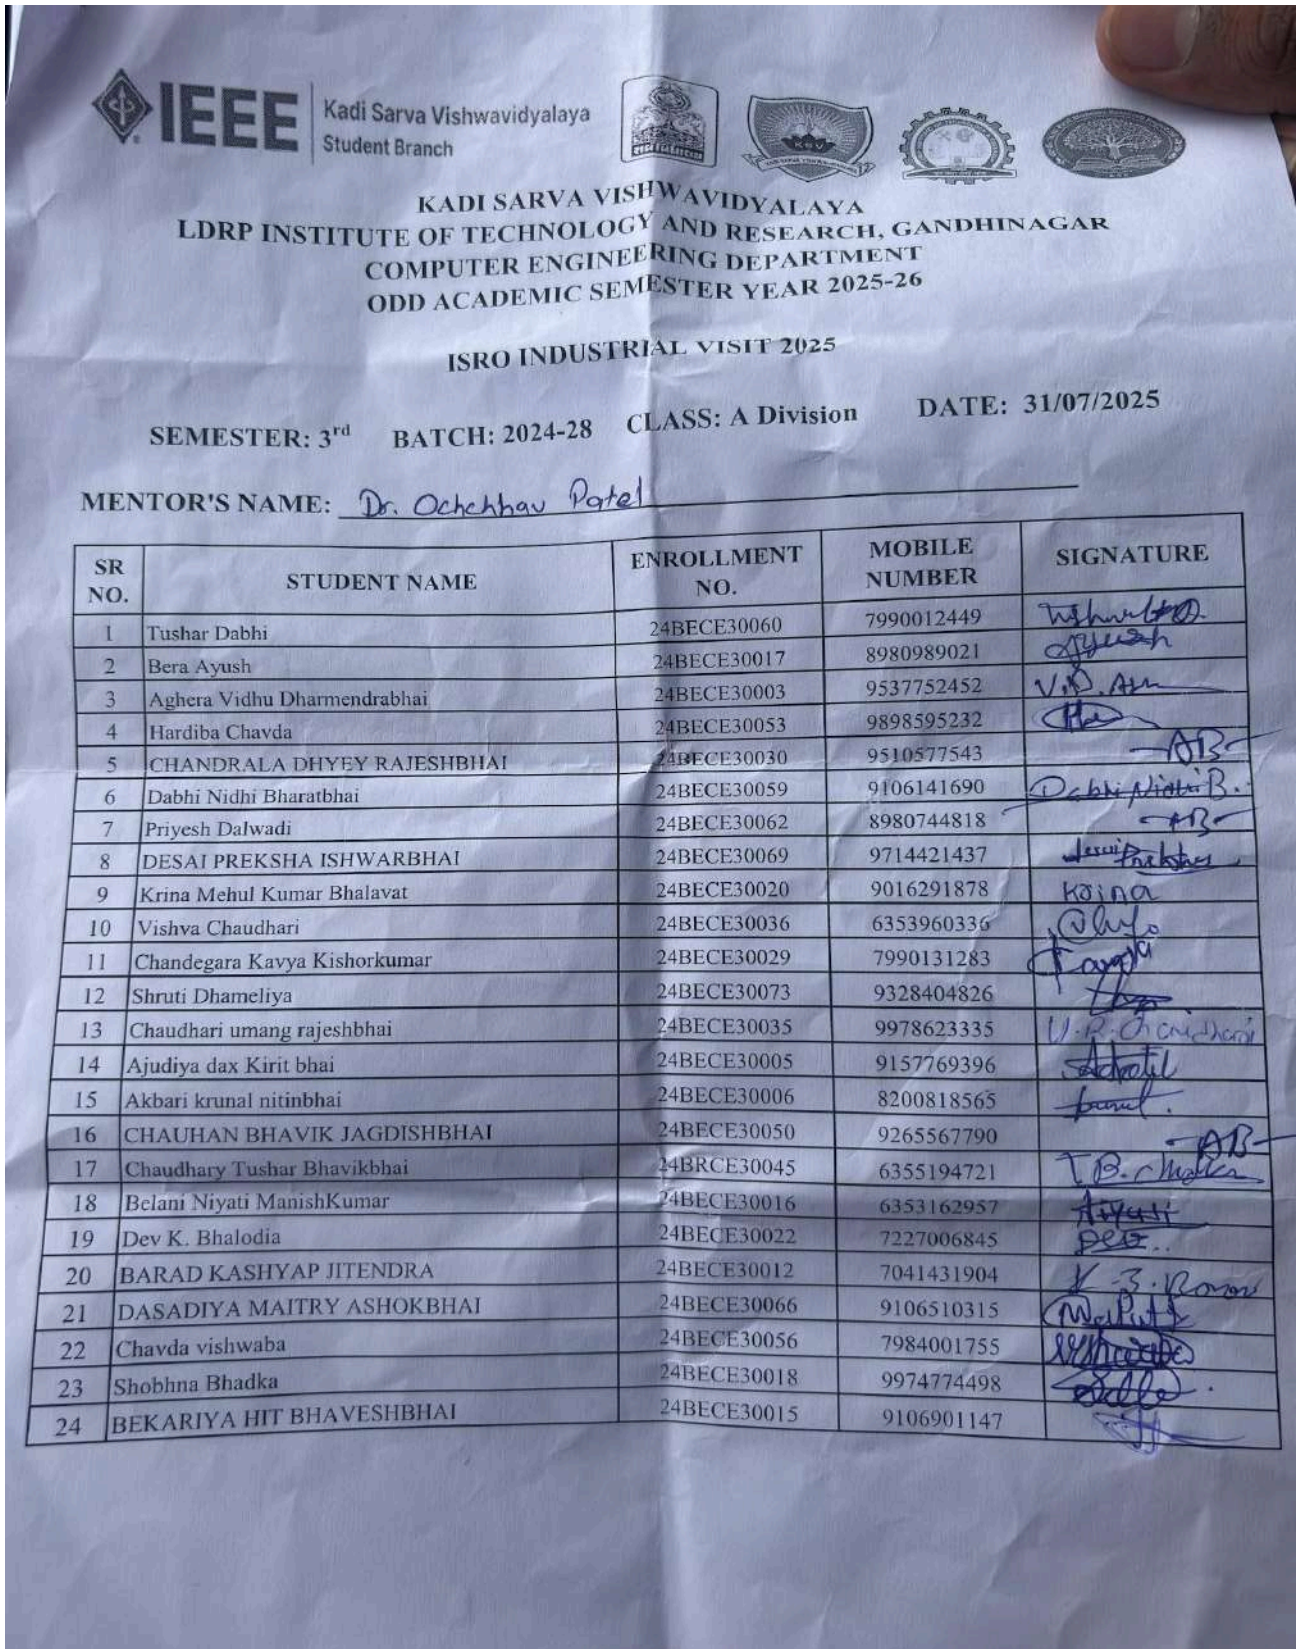 IEEE
Kadi Sarva Vishwavidyalaya
Student Branch
KADI SARVA VISHWAVIDYALAYA
LDRP INSTITUTE OF TECHNOLOGY AND RESEARCH, GANDHINAGAR
COMPUTER ENGINEERING DEPARTMENT
ODD ACADEMIC SEMESTER YEAR 2025-26
ISRO INDUSTRIAL VISIT 2025
SEMESTER: 3rd BATCH: 2024-28 CLASS: A Division DATE: 31/07/2025
MENTOR'S NAME: Dr. Ochchhav Patel
SR NO. STUDENT NAME ENROLLMENT NO. MOBILE NUMBER SIGNATURE
1 Tushar Dabhi 24BECE30060 7990012449
2 Bera Ayush 24BECE30017 8980989021 Ayush
3 Aghera Vidhu Dharmendrabhai 24BECE30003 9537752452
4 Hardiba Chavda 24BECE30053 9898595232
5 CHANDRALA DHYEY RAJESHBHAI 24BECE30030 9510577543 -AB-
6 Dabhi Nidhi Bharatbhai 24BECE30059 9106141690 Dabhi Nidhi B.
7 Priyesh Dalwadi 24BECE30062 8980744818 -AB-
8 DESAI PREKSHA ISHWARBHAI 24BECE30069 9714421437
9 Krina Mehul Kumar Bhalavat 24BECE30020 9016291878 Krina
10 Vishva Chaudhari 24BECE30036 6353960336
11 Chandegara Kavya Kishorkumar 24BECE30029 7990131283
12 Shruti Dhameliya 24BECE30073 9328404826
13 Chaudhari umang rajeshbhai 24BECE30035 9978623335 U.R.Chaudhari
14 Ajudiya dax Kirit bhai 24BECE30005 9157769396
15 Akbari krunal nitinbhai 24BECE30006 8200818565
16 CHAUHAN BHAVIK JAGDISHBHAI 24BECE30050 9265567790 -AB-
17 Chaudhary Tushar Bhavikbhai 24BRCE30045 6355194721
18 Belani Niyati ManishKumar 24BECE30016 6353162957
19 Dev K. Bhalodia 24BECE30022 7227006845
20 BARAD KASHYAP JITENDRA 24BECE30012 7041431904
21 DASADIYA MAITRY ASHOKBHAI 24BECE30066 9106510315
22 Chavda vishwaba 24BECE30056 7984001755
23 Shobhna Bhadka 24BECE30018 9974774498
24 BEKARIYA HIT BHAVESHBHAI 24BECE30015 9106901147